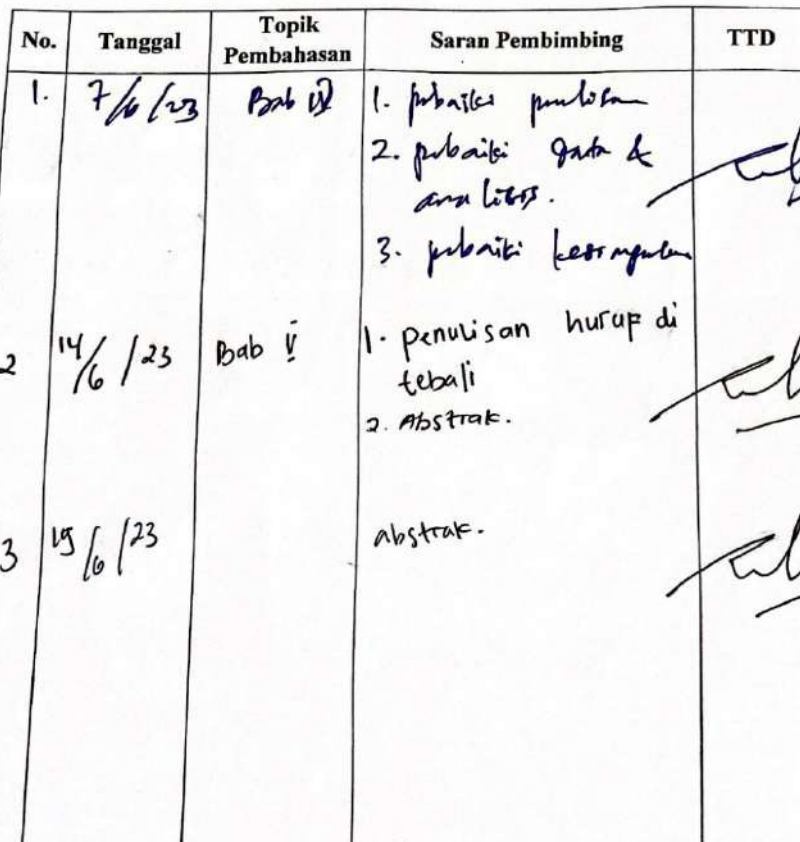 No. Tanggal Topik Pembahasan Saran Pembimbing TTD
1. 7/6/23 Bab IV 1. perbaiki penulisan
2. perbaiki data &
analisis.
3. perbaiki kesimpulan
2 14/6/23 Bab V 1. penulisan hurup di
tebali
2. Abstrak.
3 19/6/23 abstrak.